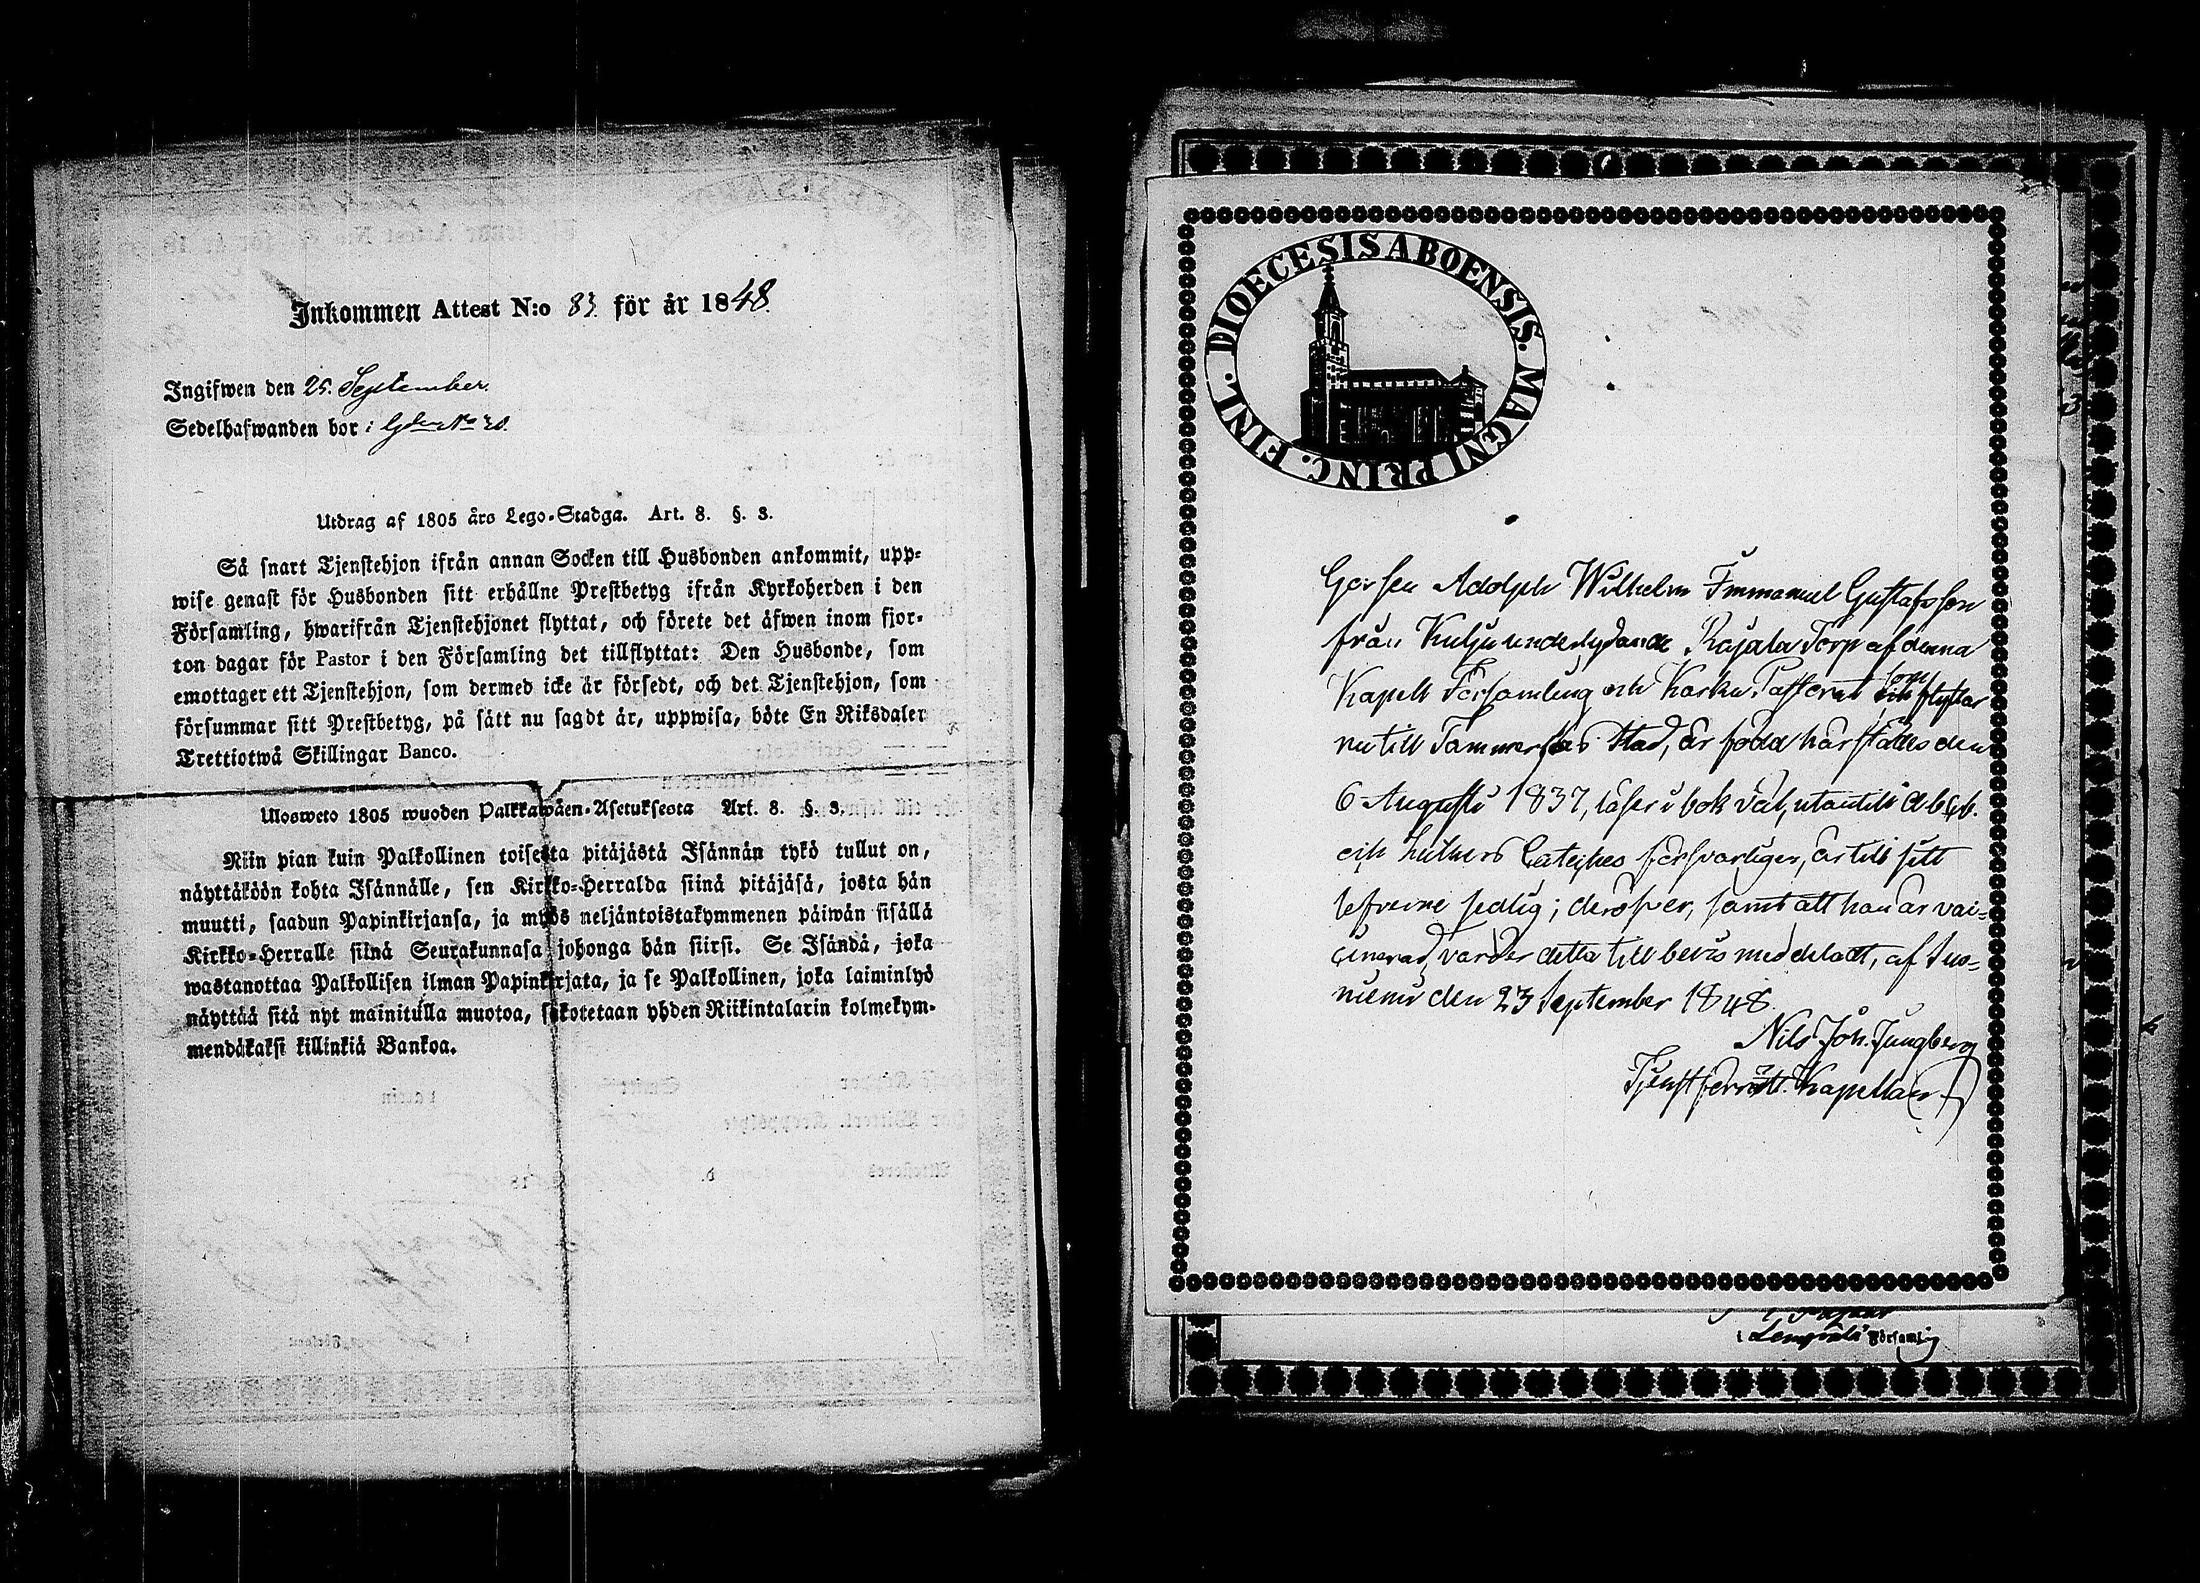 Inkommen Attest N:o 83. för år 1848.
Ingifwen den 25. September.
Sedelhafwanden bor i No 20.
Utdrag af 1805 års Lego-Stadga. Art. 8. §. 3.
Så snart Tjenstehjon ifrån annan Socken till Husbonden ankommit, upp-
wise genast för Husbonden sitt erhållne Prestbetyg ifrån Kyrkoherden i den
Församling, hwarifrån Tjenstehjonet flyttat, och förete det äfwen inom fjor-
ton dagar för Pastor i den Församling det tillflyttat: Den Husbonde, som
emottager ett Tjenstehjon, som dermed icke är försedt, och det Tjenstehjon, som
försummar sitt Prestbetyg, på sätt nu sagdt är, uppwisa, böte En Riksdaler
Trettiotwå Skillingar Banco.
Ulosweto 1805 wuoden Palkkawäen-Asetuksesta Art. 8. §. 3.
Niin pian kuin Palkollinen toisesta pitäjästä Isännän tykö tullut on,
näyttäköön kohta Isännälle, sen Kirkko-Herralda siinä pitäjäsä, josta hän
muutti, saadun Papinkirjansa, ja myös neljäntoistakymmenen päiwän sisällä
Kirkko-Herralle siinä Seurakunnasa johonga hän siirsi. Se Isändä, joka
wastanottaa Palkollisen ilman Papinkirjata, ja se Palkollinen, joka laiminlyö
näyttää sitä nyt mainitulla muotoa, sakotetaan yhden Riikintalarin kolmekym-
mendäkaksi killinkiä Bankoa.
DIOECESIS ABOENSIS. MAGNI PRINC. FINL.
Gossen Adolph Wilhelm Immanuel Gustafsson
från Kulju underlydande Rajala Torp af denna
Kapell Församling och Karku Pastorat som flyttar
nu till Tammerfors Stad, är född härstädes den
6 Augusti 1837, läser i bok väl, utantill abcb.
och Luthers Catechес försvarligen, är till sitt
lefverne sedlig; deröfver, samt att han är vac-
cinerad, varder detta till bevis meddeladt, af Suo-
niemi den 23 September 1848.
Nils Joh. Ljungberg
Tjenstförrätt. Kapellan
i Lempälä Församling